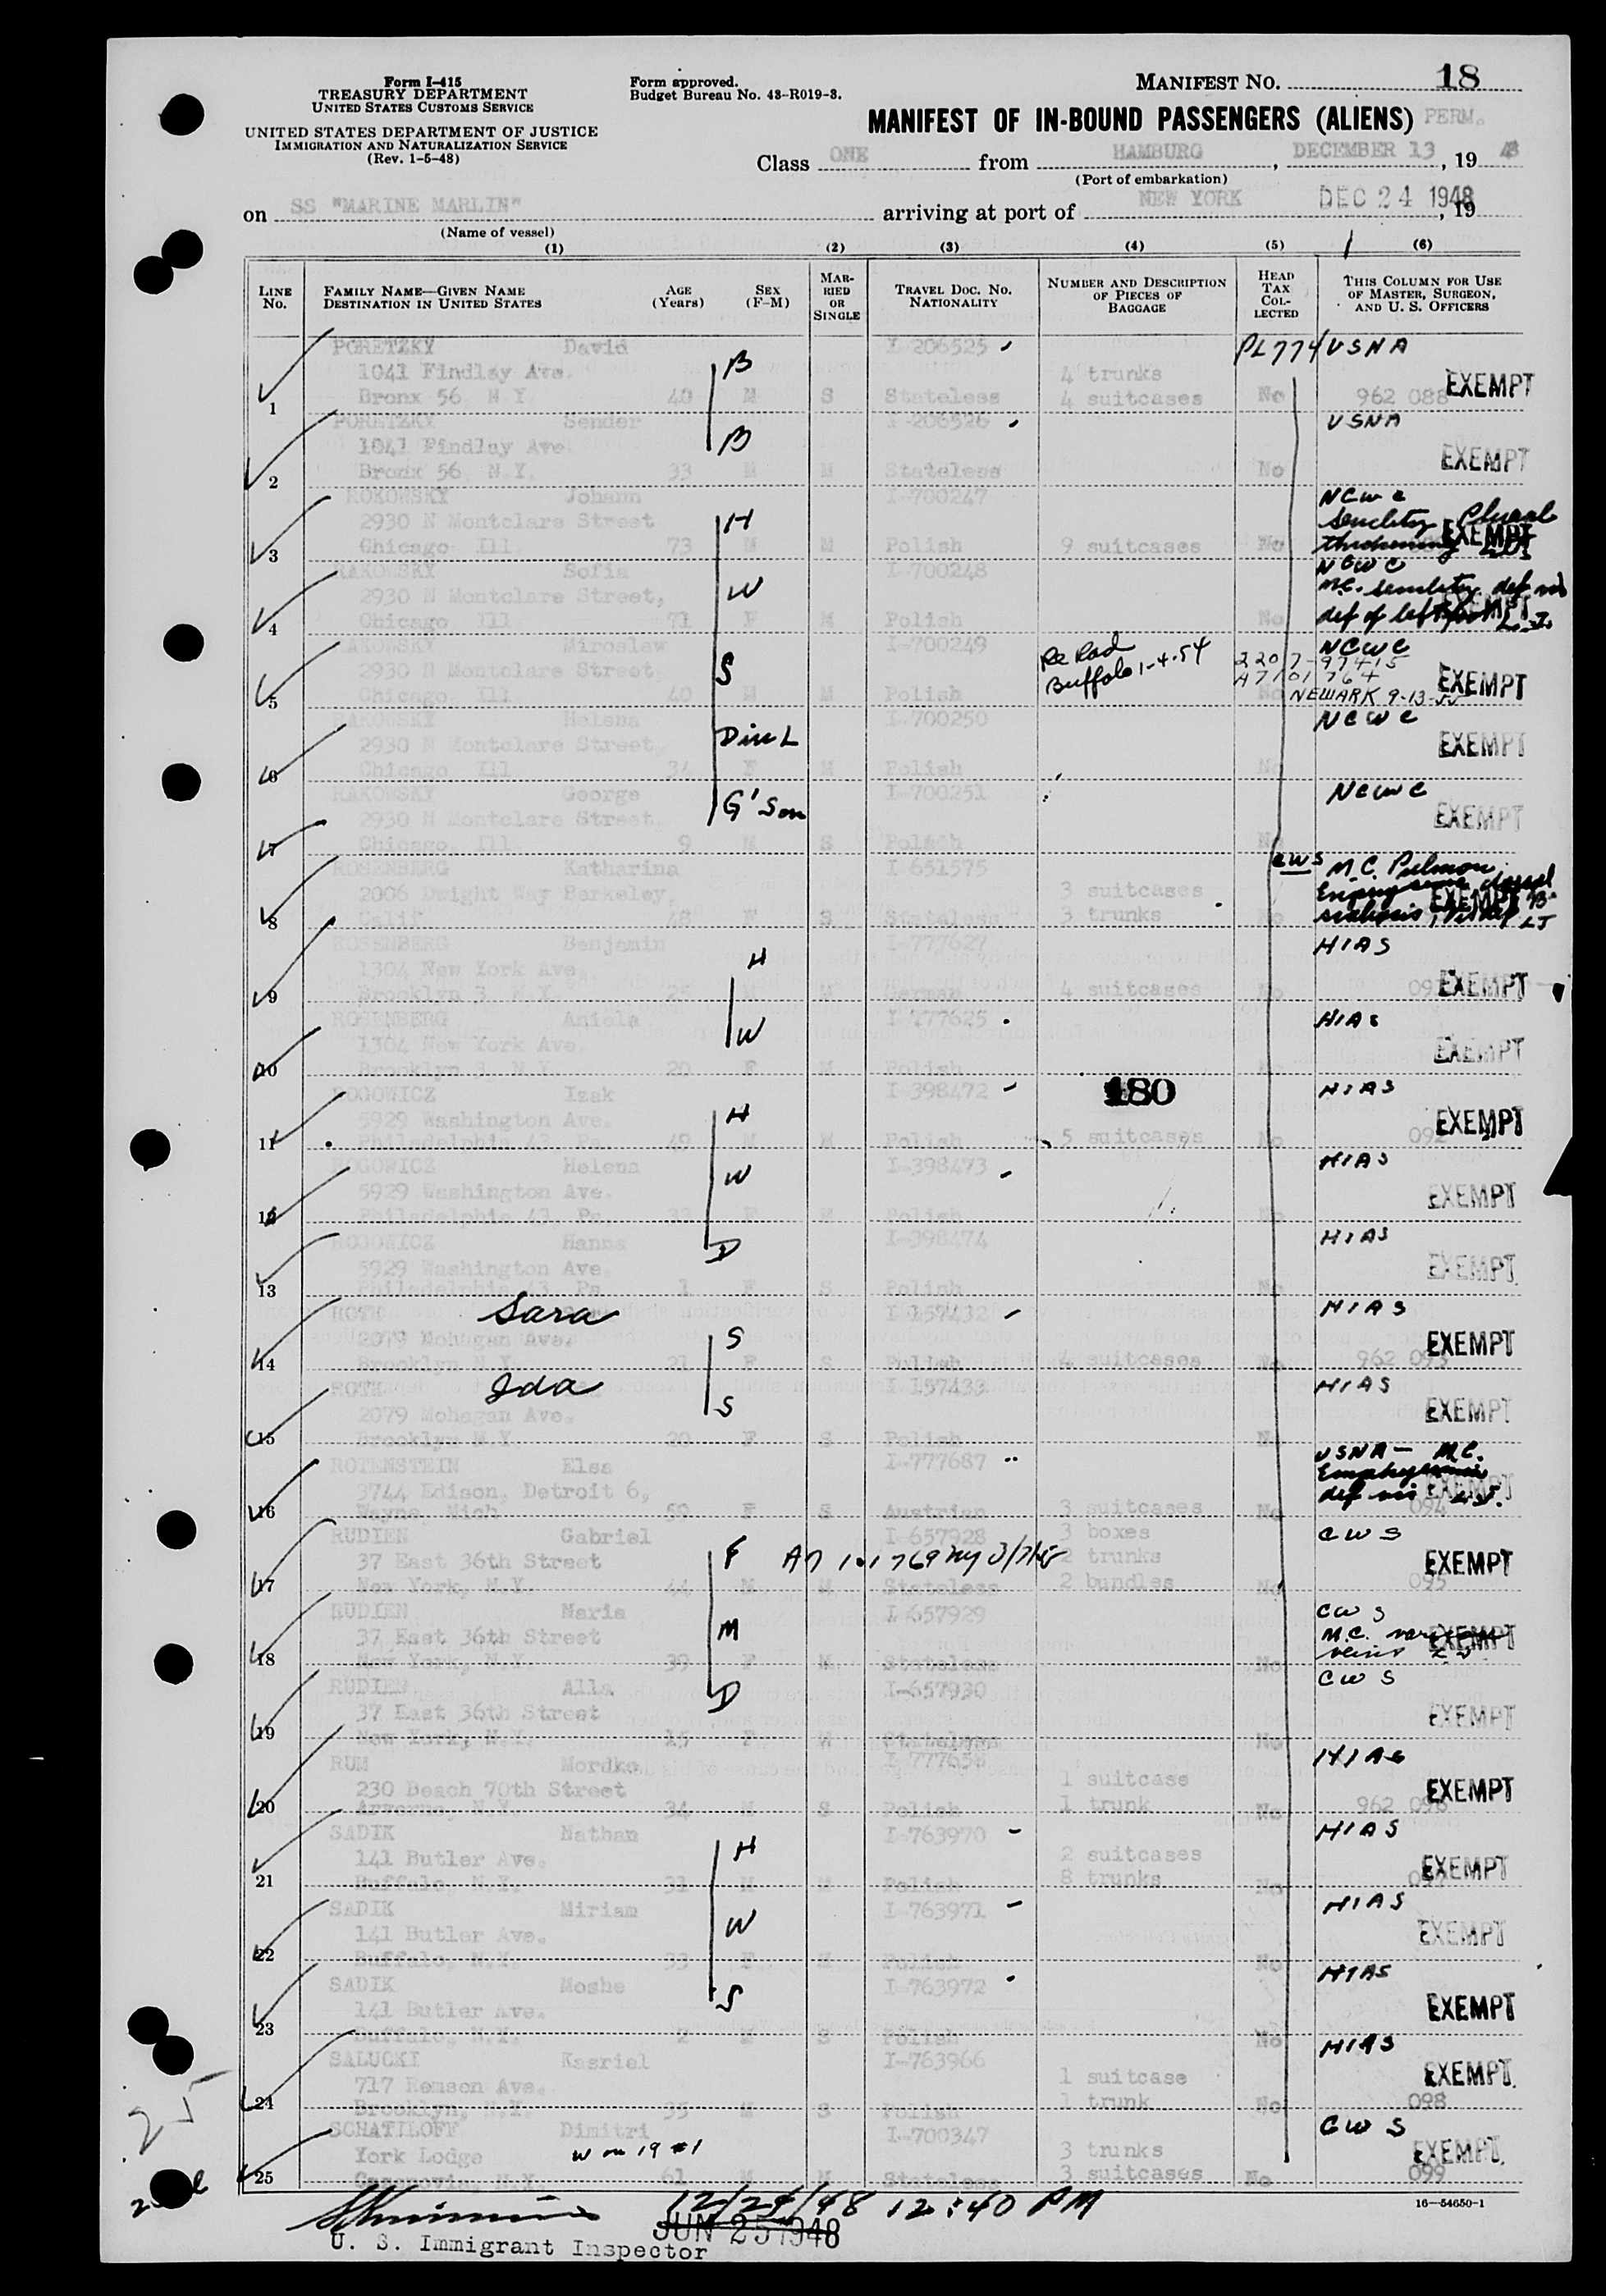 Form I-415
TREASURY DEPARTMENT
UNITED STATES CUSTOMS SERVICE
UNITED STATES DEPARTMENT OF JUSTICE
IMMIGRATION AND NATURALIZATION SERVICE
(Rev. 1-5-48)
Form approved.
Budget Bureau No. 43-R019-3.
MANIFEST NO. 18
MANIFEST OF IN-BOUND PASSENGERS (ALIENS) PERM.
Class ONE from HAMBURG, DECEMBER 13, 19 48
(Port of embarkation)
on SS "MARINE MARLIN" arriving at port of NEW YORK DEC 24 1948, 19
(Name of vessel)
(1) (2) (3) (4) (5) (6)
LINE NO. FAMILY NAME—GIVEN NAME DESTINATION IN UNITED STATES AGE (Years) SEX (F-M) MARRIED OR SINGLE TRAVEL DOC. NO. NATIONALITY NUMBER AND DESCRIPTION OF PIECES OF BAGGAGE HEAD TAX COLLECTED THIS COLUMN FOR USE OF MASTER, SURGEON, AND U. S. OFFICERS
PORETZKY David I-206525 PL774 USNA
1041 Findlay Ave. B 4 trunks
1 Bronx 56, N.Y. 40 M S Stateless 4 suitcases No 962 088 EXEMPT
PORETZKY Sender I-206526 USNA
1041 Findlay Ave B
2 Bronx 56, N.Y. 33 M M Stateless No EXEMPT
ROKOWSKY Johann I-700247 NCWC
2930 N Montclare Street H Senility Pleural
3 Chicago Ill. 73 M M Polish 9 suitcases No thickening EXEMPT
RAKOWSKY Sofia I-700248 NCWC
2930 N Montclare Street, W M.C. Senility def vis
4 Chicago Ill 71 F M Polish No def of left EXEMPT
RAKOWSKY Miroslaw I-700249 NCWC
2930 N Montclare Street S Re Rad Buffalo 1-4-54 2207-97415
5 Chicago, Ill. 40 M M Polish No A7101764 NEWARK 9-13-55 EXEMPT
RAKOWSKY Helena I-700250 NCWC
2930 N Montclare Street, D in L
6 Chicago Ill 34 F M Polish No EXEMPT
RAKOWSKY George I-700251 NCWC
2930 N Montclare Street. G'Son
7 Chicago, Ill. 9 M S Polish No EXEMPT
ROSENBERG Katharina I-651575 CWS M.C. Pulmon.
2006 Dwight Way Berkeley, 3 suitcases Emphysema dorsal
8 Calif 48 F S Stateless 3 trunks No scoliosis, EXEMPT LJ
ROSENBERG Benjamin I-777627 HIAS
1304 New York Ave. H
9 Brooklyn 3 N.Y. 25 M M German 4 suitcases No EXEMPT
ROSENBERG Aniela I-777625 HIAS
1304 New York Ave. W
10 Brooklyn 3, N.Y. 20 F M Polish EXEMPT
ROGOWICZ Izak I-398472 180 HIAS
5929 Washington Ave. H
11 Philadelphia 43, Pa. 49 M M Polish 5 suitcases No 092 EXEMPT
ROGOWICZ Helena I-398473 HIAS
5929 Washington Ave. W
12 Philadelphia 43, Pa. 33 F M Polish No EXEMPT
ROGOWICZ Hanna I-398474 HIAS
5929 Washington Ave. D
13 Philadelphia 43, Pa. 1 F S Polish No EXEMPT
ROTH Sara I 157432 HIAS
2079 Mohagan Ave. S
14 Brooklyn N.Y. 21 F S Polish 4 suitcases No 962 093 EXEMPT
ROTH Ida I 157433 HIAS
2079 Mohagan Ave. S
15 Brooklyn N.Y. 20 F S Polish No EXEMPT
ROTENSTEIN Elsa I-777687 USNA — M.C.
3744 Edison, Detroit 6, Emphysema
16 Wayne, Mich 59 F S Austrian 3 suitcases No def vis 094 EXEMPT
RUDIEN Gabriel I-657928 3 boxes CWS
37 East 36th Street F 2 trunks
17 New York, N.Y. 44 M M Stateless 2 bundles No 095 EXEMPT
RUDIEN Maria I-657929 CWS
37 East 36th Street M M.C. EXEMPT
18 New York, N.Y. 39 F M Stateless No veins
RUDIEN Alla I-657930 CWS
37 East 36th Street D
19 New York, N.Y. 15 F M Stateless No EXEMPT
RUM Mordko I-777656 HIAS
230 Beach 70th Street 1 suitcase
20 Arverne, N.Y. 34 M S Polish 1 trunk No 962 096 EXEMPT
SADIK Nathan I-763970 HIAS
141 Butler Ave. H 2 suitcases
21 Buffalo, N.Y. 31 M M Polish 8 trunks No EXEMPT
SADIK Miriam I-763971 HIAS
141 Butler Ave. W
22 Buffalo, N.Y. 33 F M Polish No EXEMPT
SADIK Moshe I-763972 HIAS
141 Butler Ave. S
23 Buffalo, N.Y. 2 M S Polish No EXEMPT
SALUCKI Kasriel I-763966 HIAS
717 Remsen Ave. 1 suitcase
24 Brooklyn, N.Y. 35 M S Polish 1 trunk No 098 EXEMPT
SCHATILOFF Dimitri I-700347 CWS
York Lodge W on 19 #1 3 trunks
25 Cazenovia, N.Y. 61 M M Stateless 3 suitcases No 099 EXEMPT
25
16—54650-1
12/24/48 12:40 PM
JUN 25 1948
U. S. Immigrant Inspector